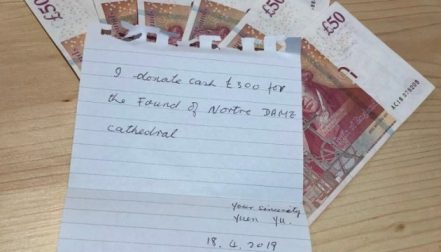 £50
£50
AC18 378009
I donate cash £300 for
the Found of Nortre DAME
cathedral
Your sincerely
Yuen Yu.
18. 4. 2019